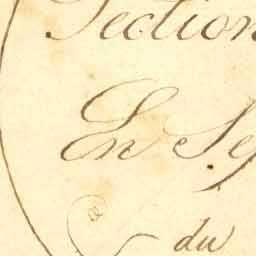 Section
En Se
du